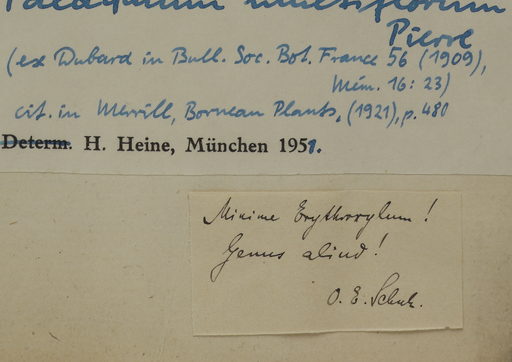 Pierre
(ex Dubard in Bull. Soc. Bot. France 56 (1909),
Mém. 16: 23)
cit. in Merrill, Bornean Plants, (1921), p. 480
Determ. H. Heine, München 1951.
Minime Erythroxylum!
Genus aliud!
O. E. Schulz.